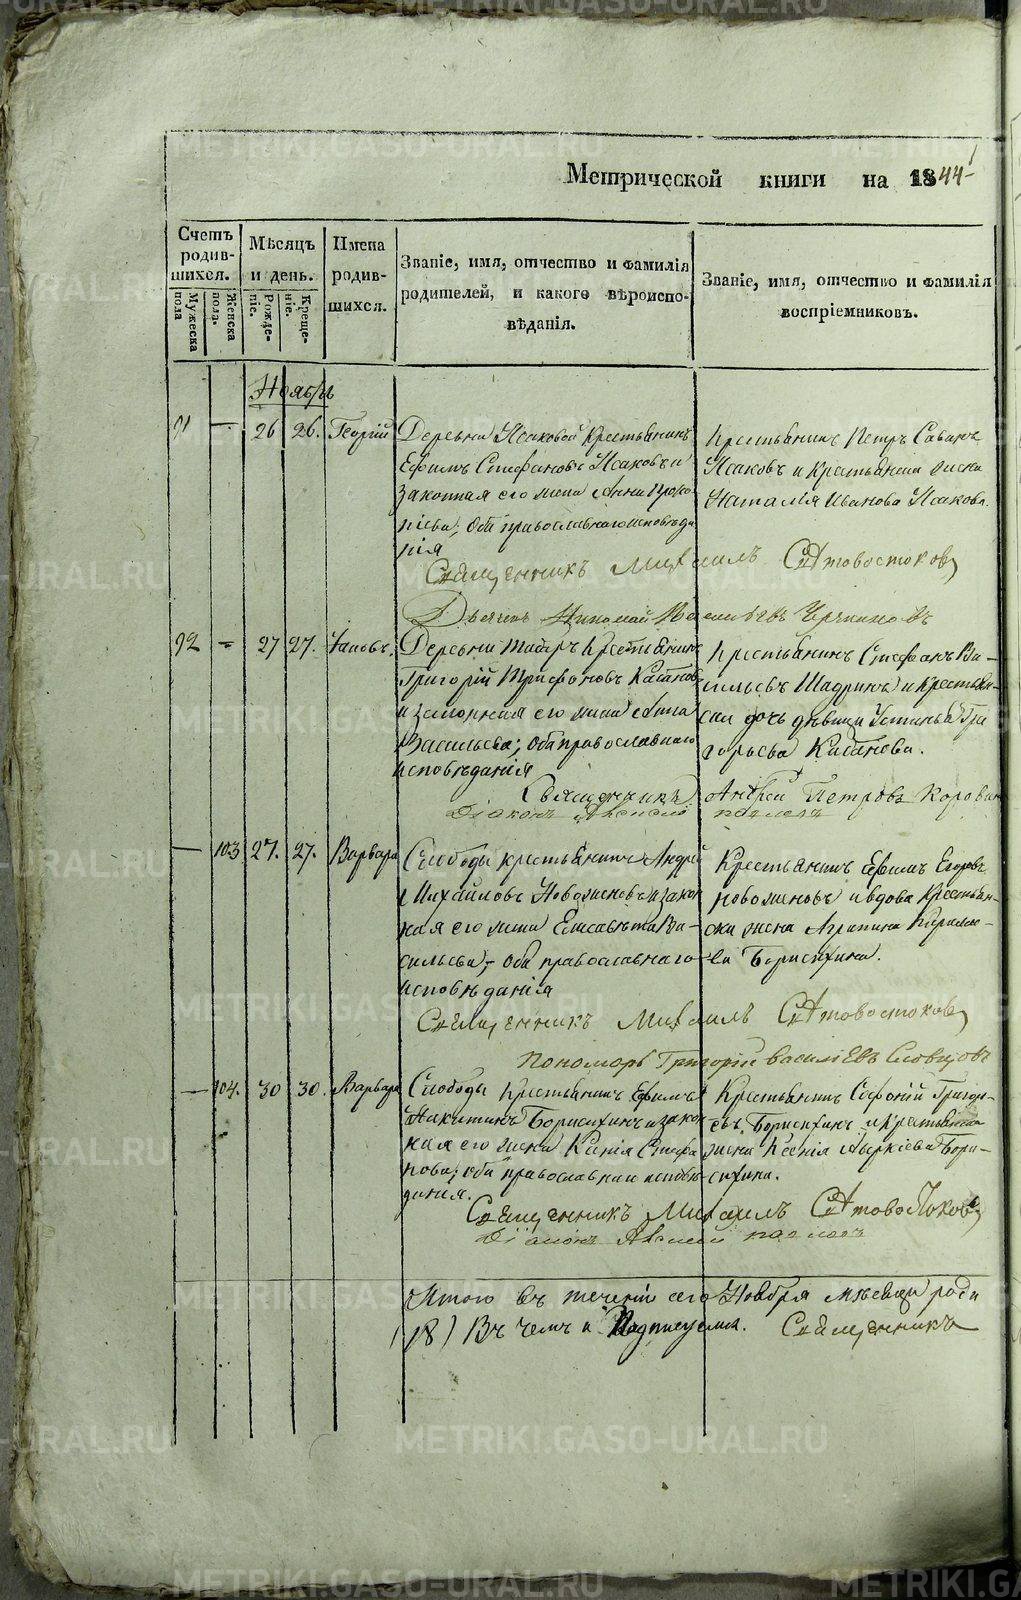 Метрической книги на 1844
Счетъ родив-шихся.
Мужеска пола
Женска пола.
Мѣсяцъ и день.
Рожде-ніе.
Креще-ніе.
Имена родив-шихся.
Званіе, имя, отчество и фамилія
родителей, и какого вѣроиспо-
вѣданія.
Званіе, имя, отчество и фамилія
воспріемниковъ.
Ноябрь
91 — 26 26. Георгій
Деревни Исаковой Крестьянинъ
Ефимъ Стефановъ Исаковъ и
законная его жена Анна Проко-
піева; оба православнаго исповѣда
нія
Крестьянинъ Петръ Савинъ
Исаковъ и Крестьянска жена
Наталія Иванова Исакова.
Священникъ Михаилъ Святовостоковъ
Дьячекъ Николай
92 — 27 27. Іаковъ.
Деревни Крестьянинъ
Григорій Трифоновъ Кабановъ
и законная его жена Анна
Васильева; оба православнаго
исповѣданія
Крестьянинъ Стефанъ Ва-
сильевъ Шадринъ и Крестьян-
ская дочь дѣвица Устинья Гри
горьева Кабанова.
Священникъ Андрей Петровъ Коровинъ
Діаконъ Алексѣй
— 103 27. 27. Варвара
Слободы крестьянинъ Андрей
Михайловъ Новоженовъ и закон
ная его жена Елисавета Ва-
сильева; оба православнаго
исповѣданія
Крестьянинъ Ефимъ Егоровъ
Новоженовъ и вдова Крестьян-
ска жена Агрипина Кирило-
ва Борисихина.
Священникъ Михаилъ Святовостоковъ
Пономарь Григорій Василіевъ Словцовъ
— 104. 30 30. Варвара
Слободы Крестьянинъ Ефимъ
Никитинъ Борисихинъ и закон
ная его жена Ксенія Стефа
нова; оба православнаго исповѣ
данія.
Крестьянинъ Софоній Григорь-
евъ Борисихинъ и Крестьянска
жена Ксенія Аыркіева Бори-
сихина.
Священникъ Михаилъ Святовостоковъ
Діаконъ Алексѣй
Итого въ теченіи сего Ноября мѣсяца роди
(18) Въ чемъ и Подписуемся. Священникъ
METRIKI.GASO-URAL.RU